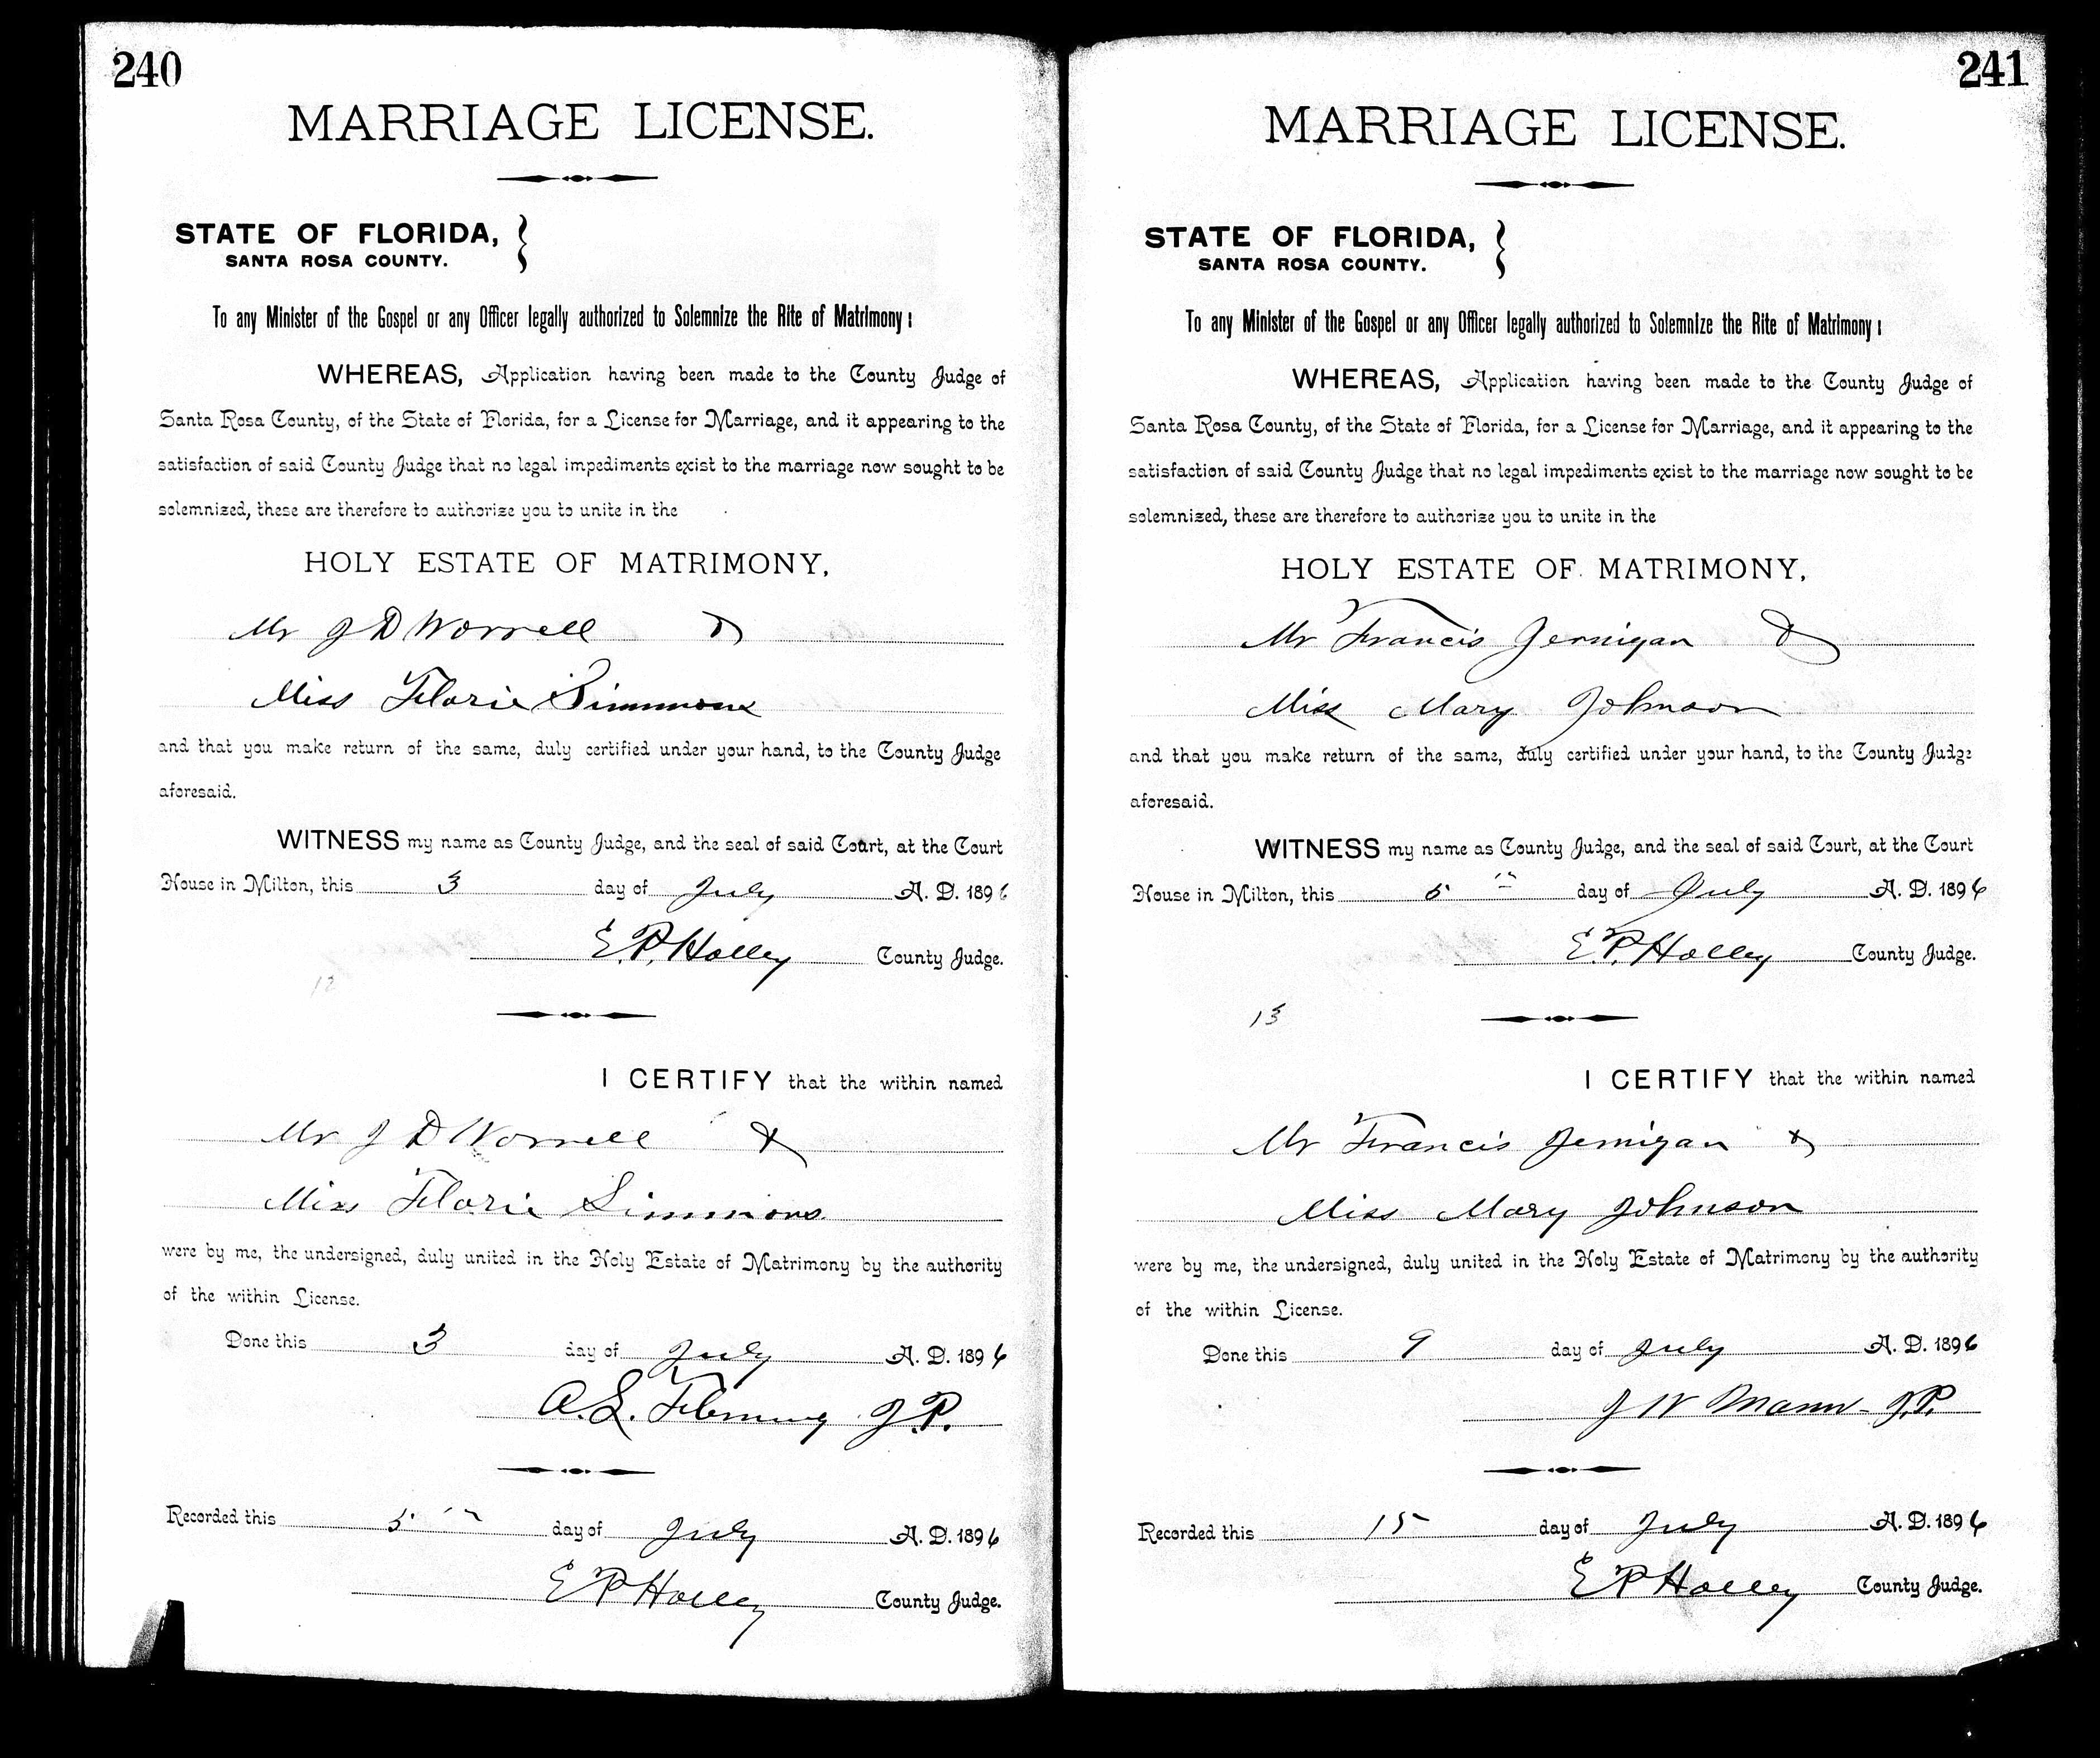 240
MARRIAGE LICENSE.
STATE OF FLORIDA,
SANTA ROSA COUNTY.
To any Minister of the Gospel or any Officer legally authorized to Solemnize the Rite of Matrimony:
WHEREAS, Application having been made to the County Judge of
Santa Rosa County, of the State of Florida, for a License for Marriage, and it appearing to the
satisfaction of said County Judge that no legal impediments exist to the marriage now sought to be
solemnized, these are therefore to authorize you to unite in the
HOLY ESTATE OF MATRIMONY,
Mr J D Worrell &
Miss Florie Simmons
and that you make return of the same, duly certified under your hand, to the County Judge
aforesaid.
WITNESS my name as County Judge, and the seal of said Court, at the Court
House in Milton, this 3 day of July A. D. 1896
E. P. Holley County Judge.
12
I CERTIFY that the within named
Mr J D Worrell &
Miss Florie Simmons
were by me, the undersigned, duly united in the Holy Estate of Matrimony by the authority
of the within License.
Done this 3 day of July A. D. 1896
A. L. Fleming J. P.
Recorded this 5th day of July A. D. 1896
E P Holley County Judge.
241
MARRIAGE LICENSE.
STATE OF FLORIDA,
SANTA ROSA COUNTY.
To any Minister of the Gospel or any Officer legally authorized to Solemnize the Rite of Matrimony:
WHEREAS, Application having been made to the County Judge of
Santa Rosa County, of the State of Florida, for a License for Marriage, and it appearing to the
satisfaction of said County Judge that no legal impediments exist to the marriage now sought to be
solemnized, these are therefore to authorize you to unite in the
HOLY ESTATE OF MATRIMONY,
Mr Francis Jernigan &
Miss Mary Johnson
and that you make return of the same, duly certified under your hand, to the County Judge
aforesaid.
WITNESS my name as County Judge, and the seal of said Court, at the Court
House in Milton, this 5th day of July A. D. 1896
E. P. Holley County Judge.
13
I CERTIFY that the within named
Mr Francis Jernigan &
Miss Mary Johnson
were by me, the undersigned, duly united in the Holy Estate of Matrimony by the authority
of the within License.
Done this 9 day of July A. D. 1896
J W Mann - J. P.
Recorded this 15 day of July A. D. 1896
E P Holley County Judge.